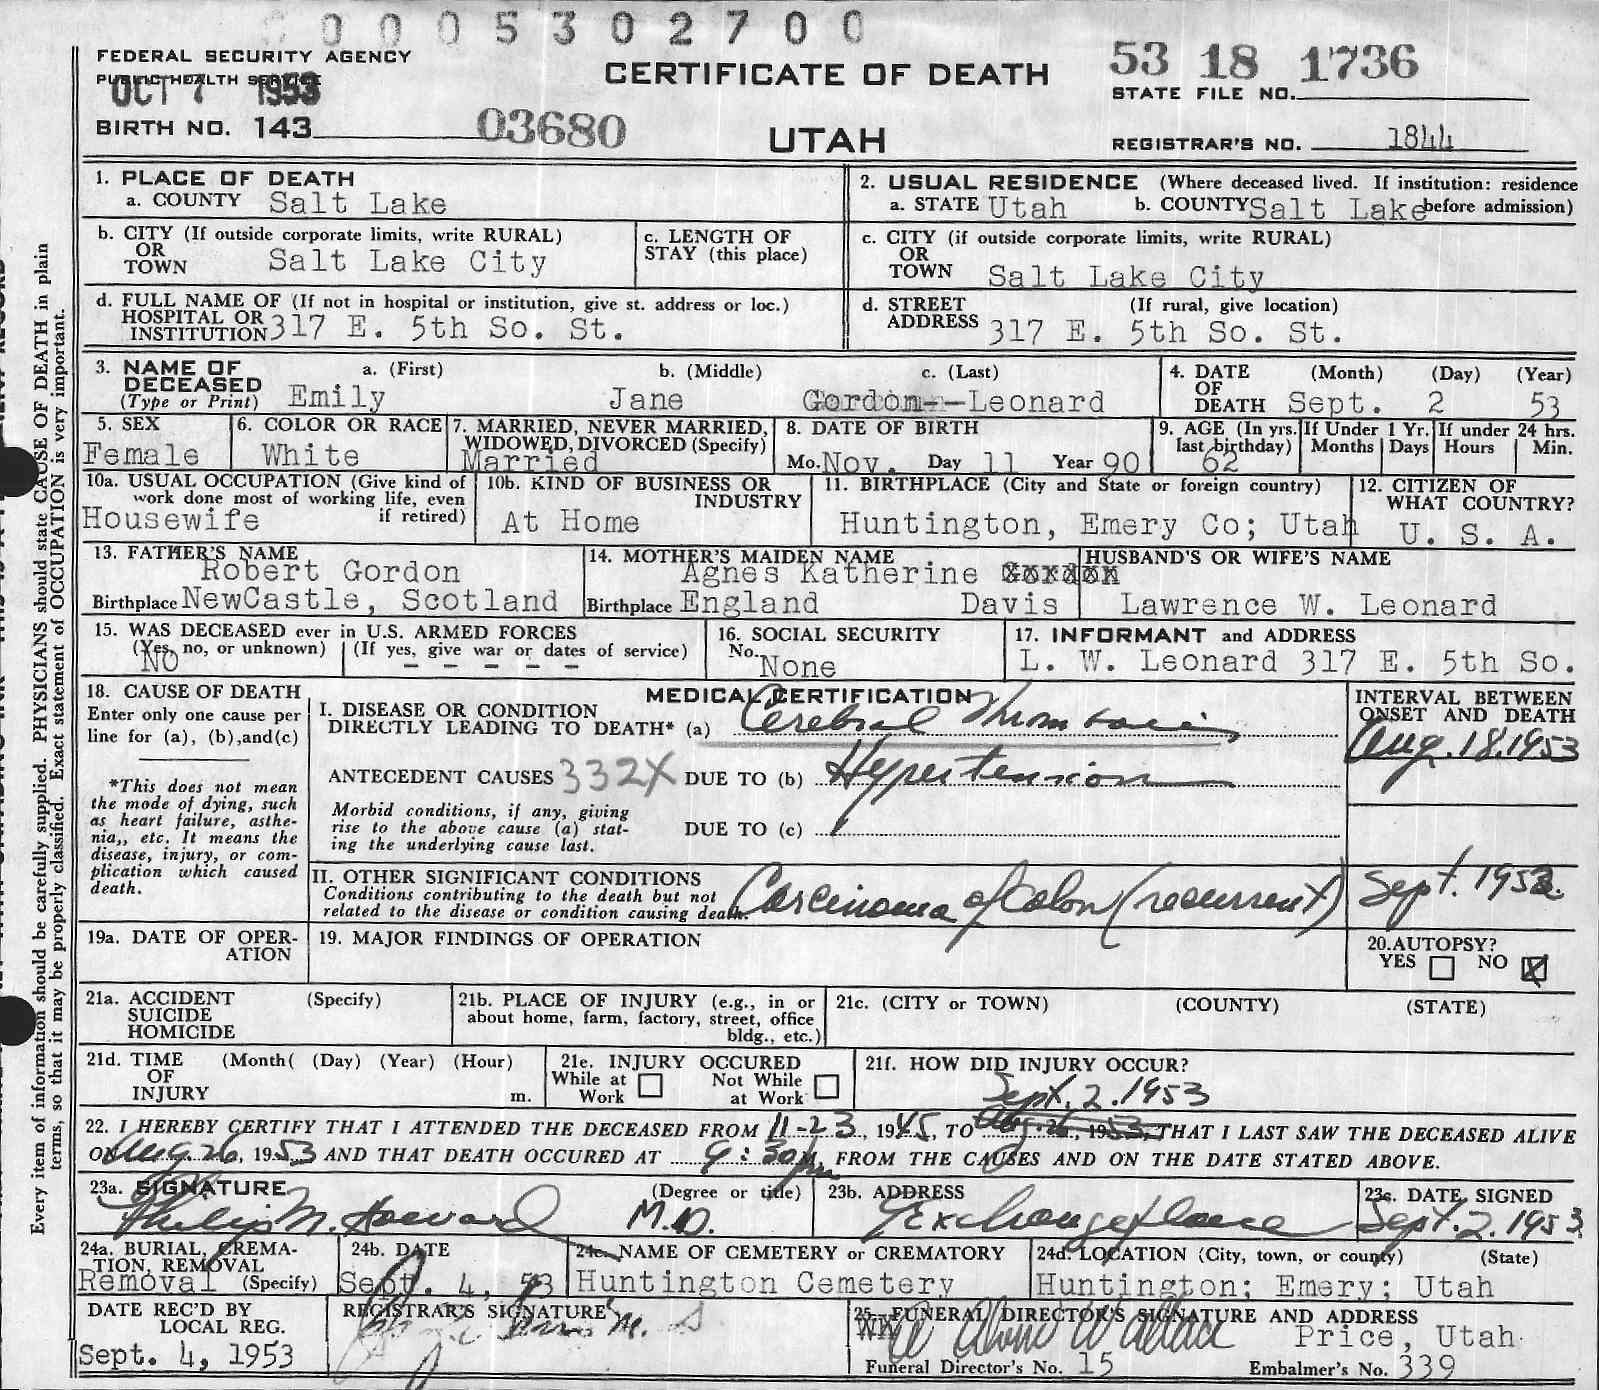 0005302700
FEDERAL SECURITY AGENCY
PUBLIC HEALTH SERVICE
OCT 7 1953
CERTIFICATE OF DEATH
53 18 1736
STATE FILE NO.
BIRTH NO. 143
03680
UTAH
REGISTRAR'S NO. 1844
1. PLACE OF DEATH
a. COUNTY Salt Lake
2. USUAL RESIDENCE (Where deceased lived. If institution: residence
a. STATE Utah b. COUNTY Salt Lake before admission)
b. CITY (If outside corporate limits, write RURAL)
OR
TOWN Salt Lake City
c. LENGTH OF
STAY (this place)
c. CITY (if outside corporate limits, write RURAL)
OR
TOWN Salt Lake City
d. FULL NAME OF (If not in hospital or institution, give st. address or loc.)
HOSPITAL OR
INSTITUTION 317 E. 5th So. St.
d. STREET (If rural, give location)
ADDRESS 317 E. 5th So. St.
3. NAME OF a. (First) b. (Middle) c. (Last)
DECEASED
(Type or Print) Emily Jane Gordon--Leonard
4. DATE (Month) (Day) (Year)
OF
DEATH Sept. 2 53
5. SEX
Female
6. COLOR OR RACE
White
7. MARRIED, NEVER MARRIED,
WIDOWED, DIVORCED (Specify)
Married
8. DATE OF BIRTH
Mo. Nov. Day 11 Year 90
9. AGE (In yrs.
last birthday)
62
If Under 1 Yr.
Months Days
If under 24 hrs.
Hours Min.
10a. USUAL OCCUPATION (Give kind of
work done most of working life, even
if retired)
Housewife
10b. KIND OF BUSINESS OR
INDUSTRY
At Home
11. BIRTHPLACE (City and State or foreign country)
Huntington, Emery Co; Utah
12. CITIZEN OF
WHAT COUNTRY?
U. S. A.
13. FATHER'S NAME
Robert Gordon
Birthplace NewCastle, Scotland
14. MOTHER'S MAIDEN NAME
Agnes Katherine Gordon
Birthplace England Davis
HUSBAND'S OR WIFE'S NAME
Lawrence W. Leonard
15. WAS DECEASED ever in U.S. ARMED FORCES
(Yes, no, or unknown) (If yes, give war or dates of service)
No - - - - -
16. SOCIAL SECURITY
No.
None
17. INFORMANT and ADDRESS
L. W. Leonard 317 E. 5th So.
18. CAUSE OF DEATH
Enter only one cause per
line for (a), (b), and (c)
*This does not mean
the mode of dying, such
as heart failure, asthe-
nia,, etc. It means the
disease, injury, or com-
plication which caused
death.
MEDICAL CERTIFICATION
I. DISEASE OR CONDITION
DIRECTLY LEADING TO DEATH* (a) Cerebral Thrombosis
ANTECEDENT CAUSES 332X DUE TO (b) Hypertension
Morbid conditions, if any, giving
rise to the above cause (a) stat-
ing the underlying cause last.
DUE TO (c)
INTERVAL BETWEEN
ONSET AND DEATH
Aug. 18, 1953
II. OTHER SIGNIFICANT CONDITIONS
Conditions contributing to the death but not
related to the disease or condition causing death.
Carcinoma of Colon (recurrent)
Sept. 1952
19a. DATE OF OPER-
ATION
19. MAJOR FINDINGS OF OPERATION
20. AUTOPSY?
YES ☐ NO ☒
21a. ACCIDENT (Specify)
SUICIDE
HOMICIDE
21b. PLACE OF INJURY (e.g., in or
about home, farm, factory, street, office
bldg., etc.)
21c. (CITY or TOWN) (COUNTY) (STATE)
21d. TIME (Month( (Day) (Year) (Hour)
OF
INJURY m.
21e. INJURY OCCURED
While at ☐ Not While ☐
Work at Work
21f. HOW DID INJURY OCCUR?
Sept. 2, 1953
22. I HEREBY CERTIFY THAT I ATTENDED THE DECEASED FROM 11-23, 1945, TO Aug. 26, 1953, THAT I LAST SAW THE DECEASED ALIVE
ON Aug. 26, 1953 AND THAT DEATH OCCURED AT 9:30 pm FROM THE CAUSES AND ON THE DATE STATED ABOVE.
23a. SIGNATURE (Degree or title)
Philip M. Howard M.D.
23b. ADDRESS
Exchange Place
23c. DATE SIGNED
Sept. 2, 1953
24a. BURIAL, CREMA-
TION, REMOVAL
Removal (Specify)
24b. DATE
Sept. 4, 53
24c. NAME OF CEMETERY or CREMATORY
Huntington Cemetery
24d. LOCATION (City, town, or county) (State)
Huntington; Emery; Utah
DATE REC'D BY
LOCAL REG.
Sept. 4, 1953
REGISTRAR'S SIGNATURE
25. FUNERAL DIRECTOR'S SIGNATURE AND ADDRESS
Wallace Price, Utah
Funeral Director's No. 15 Embalmer's No. 339
Every item of information should be carefully supplied. PHYSICIANS should state CAUSE OF DEATH in plain
terms, so that it may be properly classified. Exact statement of OCCUPATION is very important.